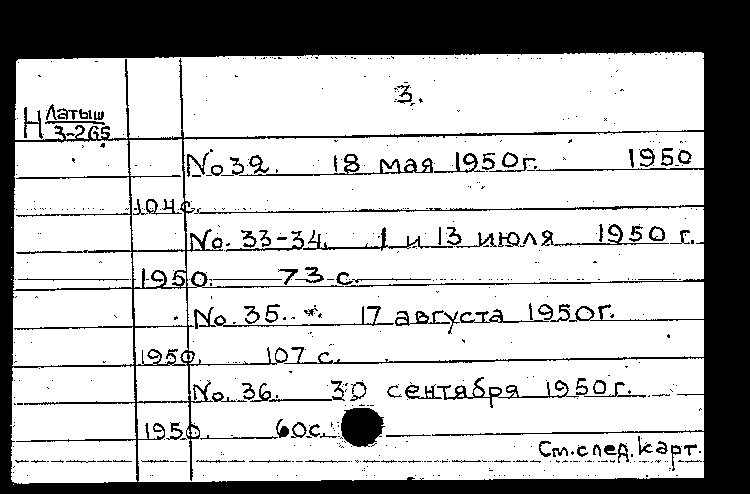 3.
Н Латыш
3-265
No 32. 18 мая 1950г. 1950
104с.
No. 33-34. 1 и 13 июля 1950 г.
1950. 73 с.
No. 35. 17 августа 1950г.
1950. 107 с.
No. 36. 30 сентября 1950г.
1950. 60с.
См. след. карт.